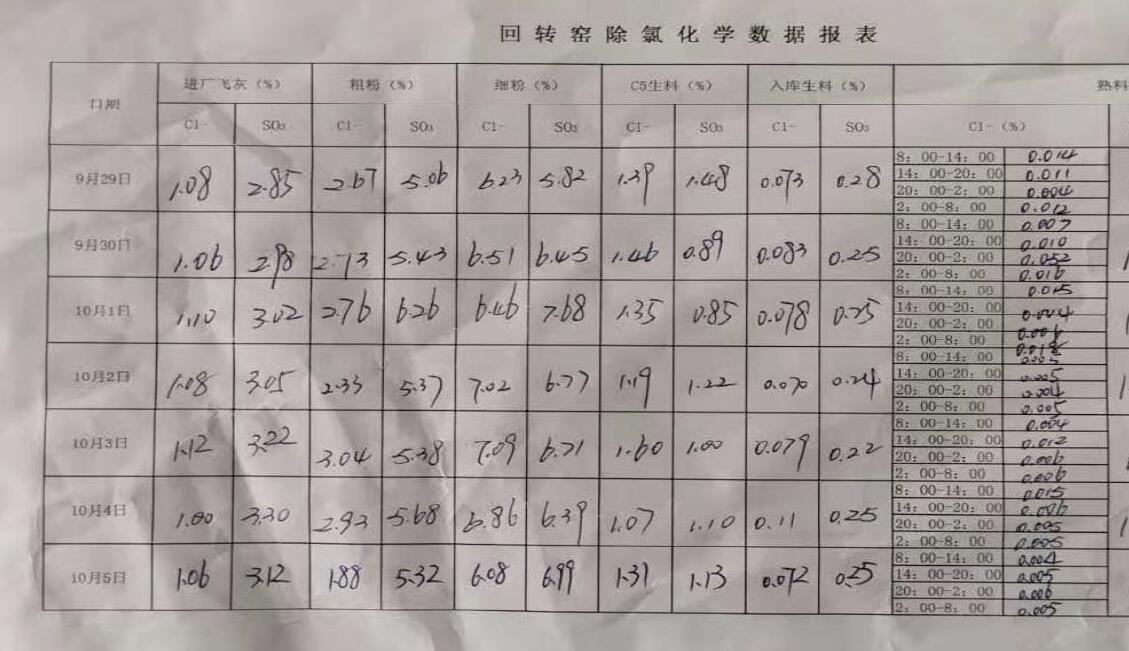 回转窑除氯化学数据报表
日期 进厂飞灰（%） 粗粉（%） 细粉（%） C5生料（%） 入库生料（%） 熟料
Cl- SO₃ Cl- SO₃ Cl- SO₃ Cl- SO₃ Cl- SO₃ Cl-（%）
9月29日 1.08 2.85 2.67 5.06 6.23 5.82 1.39 1.48 0.073 0.28
8：00-14：00 0.014
14：00-20：00 0.011
20：00-2：00 0.004
2：00-8：00 0.012
9月30日 1.06 2.98 2.73 5.43 6.51 6.45 1.46 0.89 0.083 0.25
8：00-14：00 0.007
14：00-20：00 0.010
20：00-2：00 0.052
2：00-8：00 0.016
10月1日 1.10 3.02 2.76 6.26 6.46 7.68 1.35 0.85 0.078 0.25
8：00-14：00 0.015
14：00-20：00 0.004
20：00-2：00 0.006
2：00-8：00
10月2日 1.08 3.05 2.33 5.37 7.02 6.77 1.19 1.22 0.070 0.24
8：00-14：00 0.005
14：00-20：00 0.005
20：00-2：00 0.004
2：00-8：00 0.005
10月3日 1.12 3.22 3.04 5.38 7.09 6.71 1.60 1.00 0.079 0.22
8：00-14：00 0.004
14：00-20：00 0.012
20：00-2：00 0.006
2：00-8：00 0.006
10月4日 1.00 3.30 2.93 5.68 6.86 6.39 1.07 1.10 0.11 0.25
8：00-14：00 0.015
14：00-20：00 0.006
20：00-2：00 0.005
2：00-8：00 0.005
10月5日 1.06 3.12 1.88 5.32 6.08 6.99 1.31 1.13 0.072 0.25
8：00-14：00 0.004
14：00-20：00 0.005
20：00-2：00 0.006
2：00-8：00 0.005